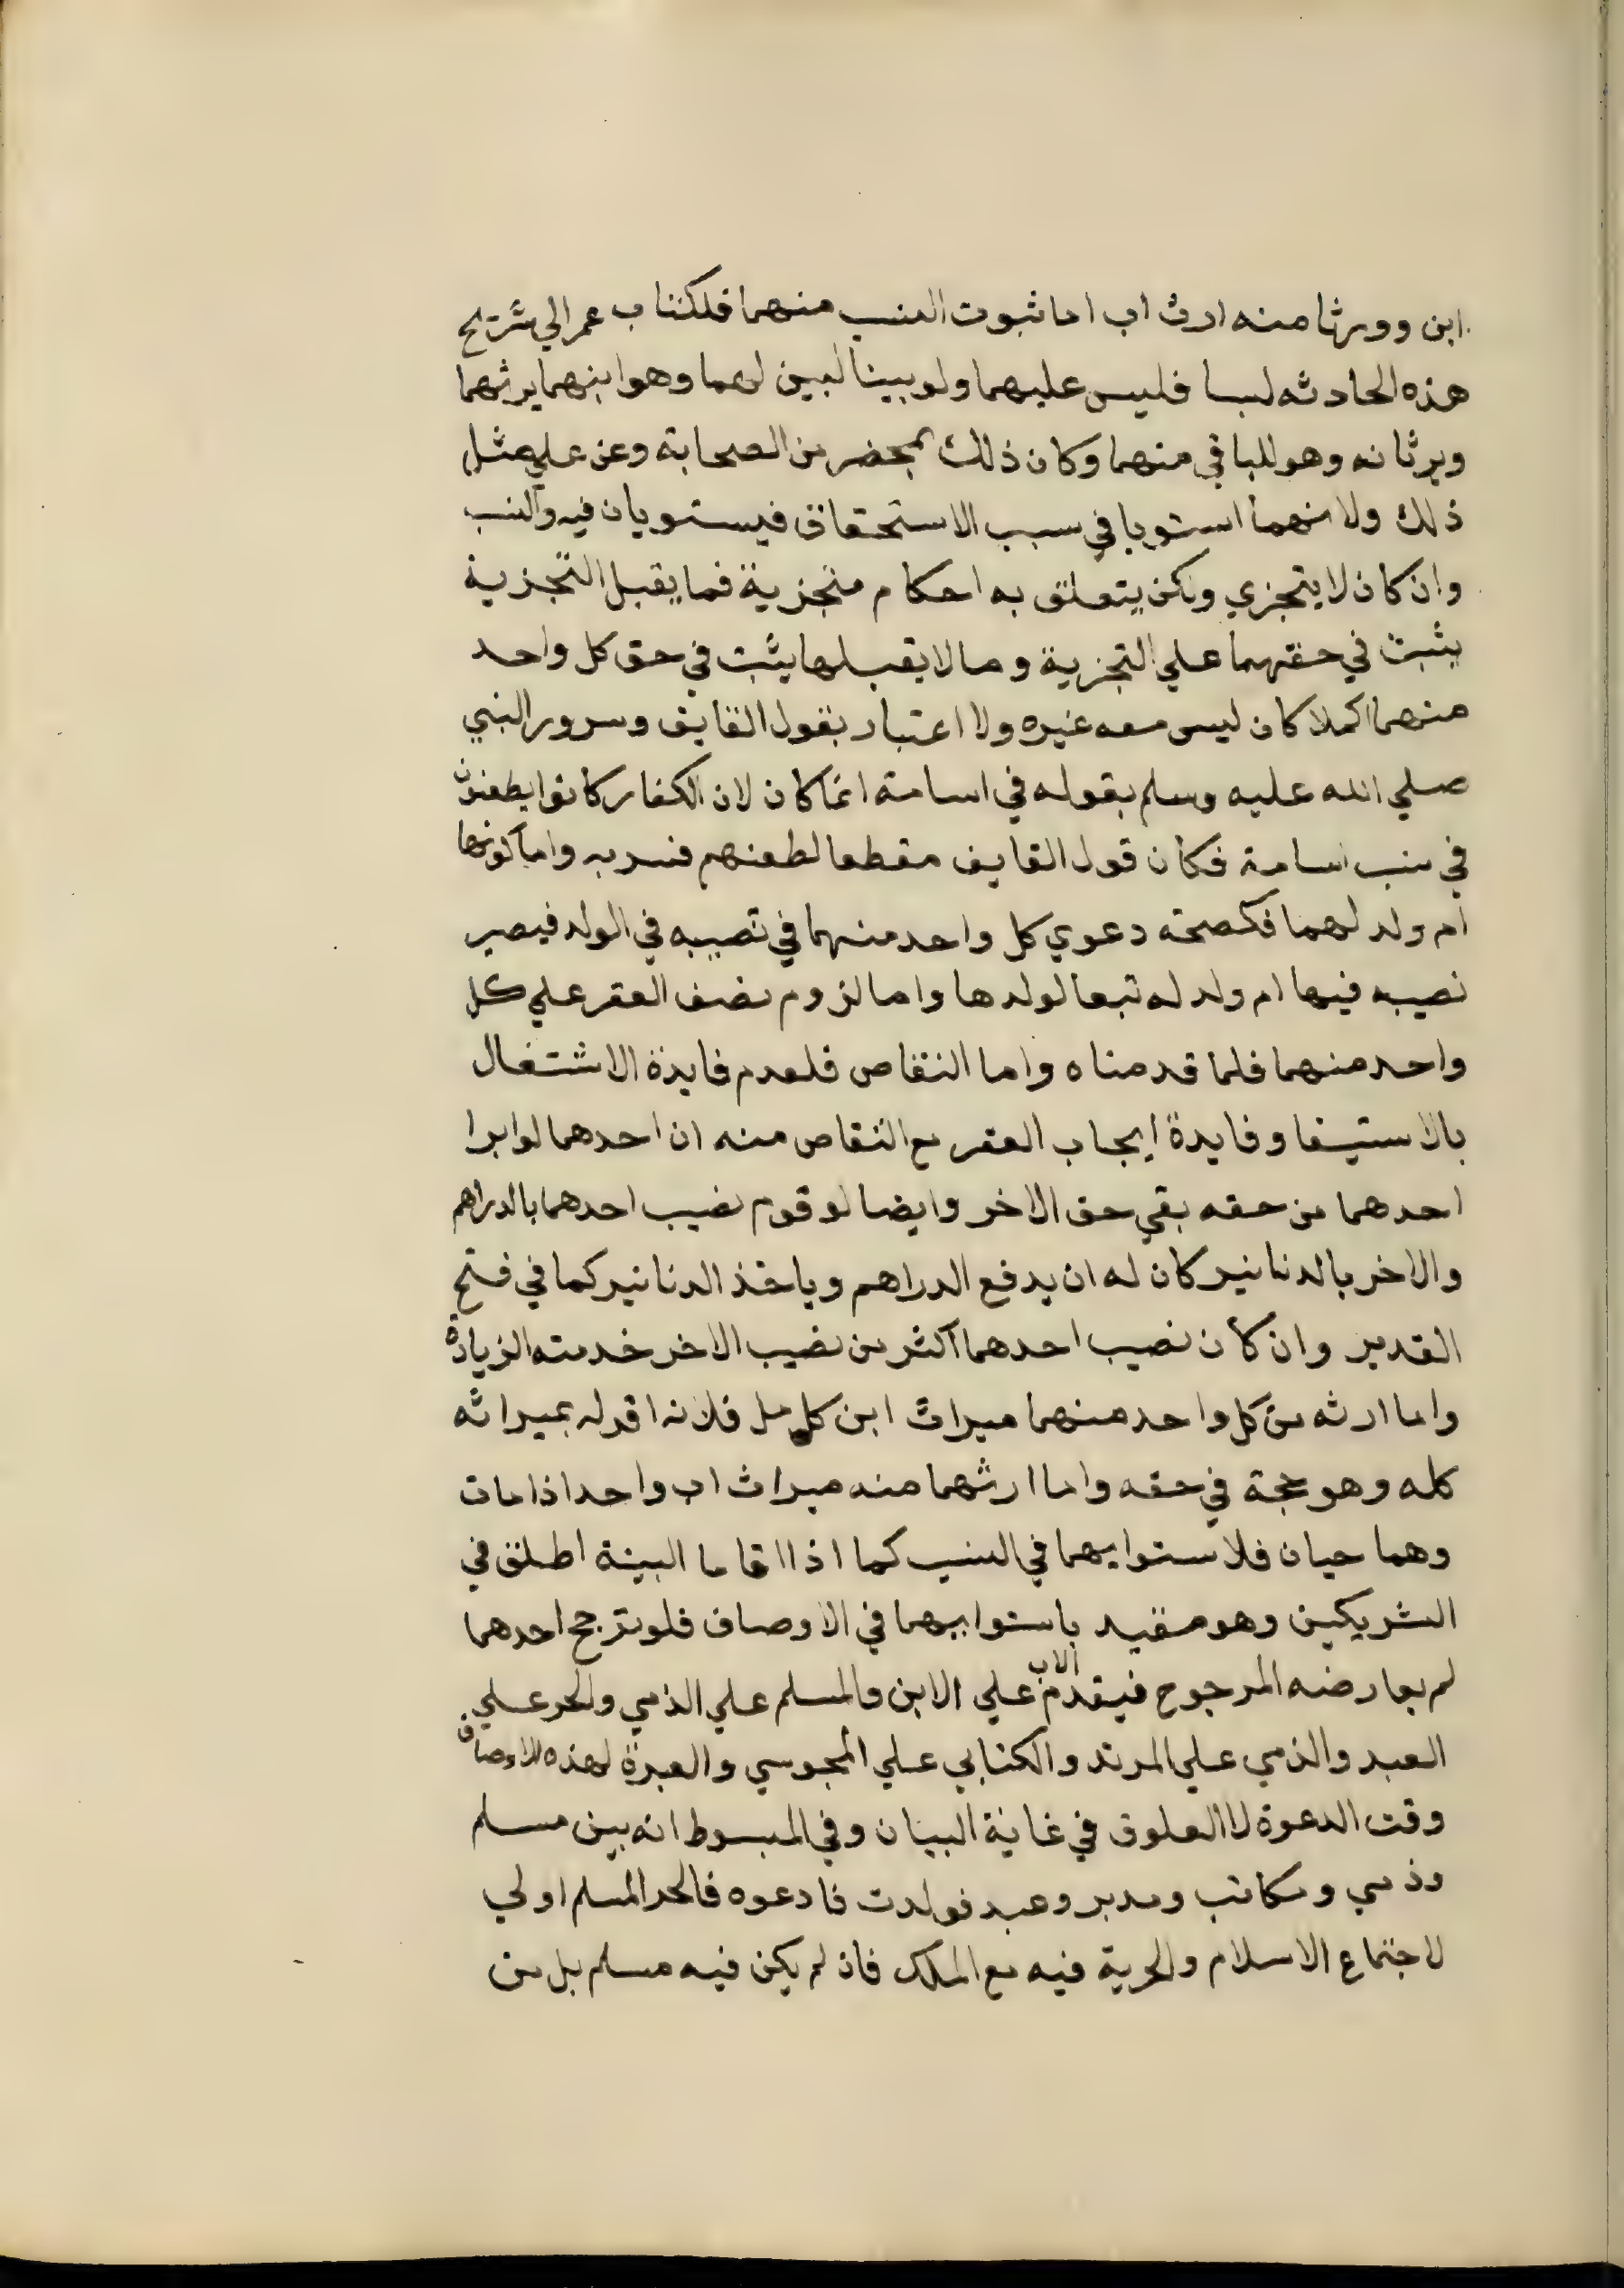 ابن وورثا منه ارث اب اما ثبوت النسب منهما فلكتاب عمر الي شريح
هذه الحادثه لبسا فليس عليهما ولو بينا لبين لهما وهو ابنهما يرثهما
ويرثانه وهو للباقي منهما وكان ذلك بمحضر من الصحابة وعن علي مثل
ذلك ولانهما استويا في سبب الاستحقاق فيستويان فيه والنسب
وان كان لا يتجزي ولكن يتعلق به احكام متجزية فما يقبل التجزية
يثبت في حقهما علي التجزية وما لا يقبلها يثبت في حق كل واحد
منهما كملا كان ليس معه غيره ولا اعتبار بقول القايف وسرور النبي
صلي الله عليه وسلم بقوله في اسامة انما كان لان الكفار كانوا يطعنون
في نسب اسامة فكان قول القايف مقطعا لطعنهم فسر به واما كونها
ام ولد لهما فكصحة دعوي كل واحد منهما في نصيبه في الولد فيصير
نصيبه فيها ام ولد له تبعا لولدها واما لزوم نصف العقر علي كل
واحد منهما فلما قدمناه واما التقاص فلعدم فايدة الاشتغال
بالاستيفا وفايدة ايجاب العقر مع التقاص منه ان احدهما لو ابرا
احدهما من حقه بقي حق الاخر وايضا لو قوم نصيب احدهما بالدراهم
والاخر بالدنانير كان له ان يدفع الدراهم وياخذ الدنانير كما في فتح
القدير وان كان نصيب احدهما اكثر من نصيب الاخر خدمته الزيادة
واما ارثه من كل واحد منهما ميراث ابن كامل فلانه اقر له بميراثه
كله وهو حجة في حقه واما ارثهما منه ميراث اب واحد اذا مات
وهما حيان فلاستوايهما في النسب كما اذا اقاما البينة اطلق في
الشريكين وهو مقيد باستوايهما في الاوصاف فلو ترجح احدهما
لم يعارضه المرجوح فيقدم الاب علي الابن والمسلم علي الذمي والحر علي
العبد والذمي علي المرتد والكتابي علي المجوسي والعبرة لهذه الاوصاف
وقت الدعوة لا العلوق في غاية البيان وفي المبسوط انه بين مسلم
وذمي ومكاتب ومدبر وعبد فولدت فادعوه فالحر المسلم اولي
لاجتماع الاسلام والحرية فيه مع الملك فان لم يكن فيه مسلم بل من